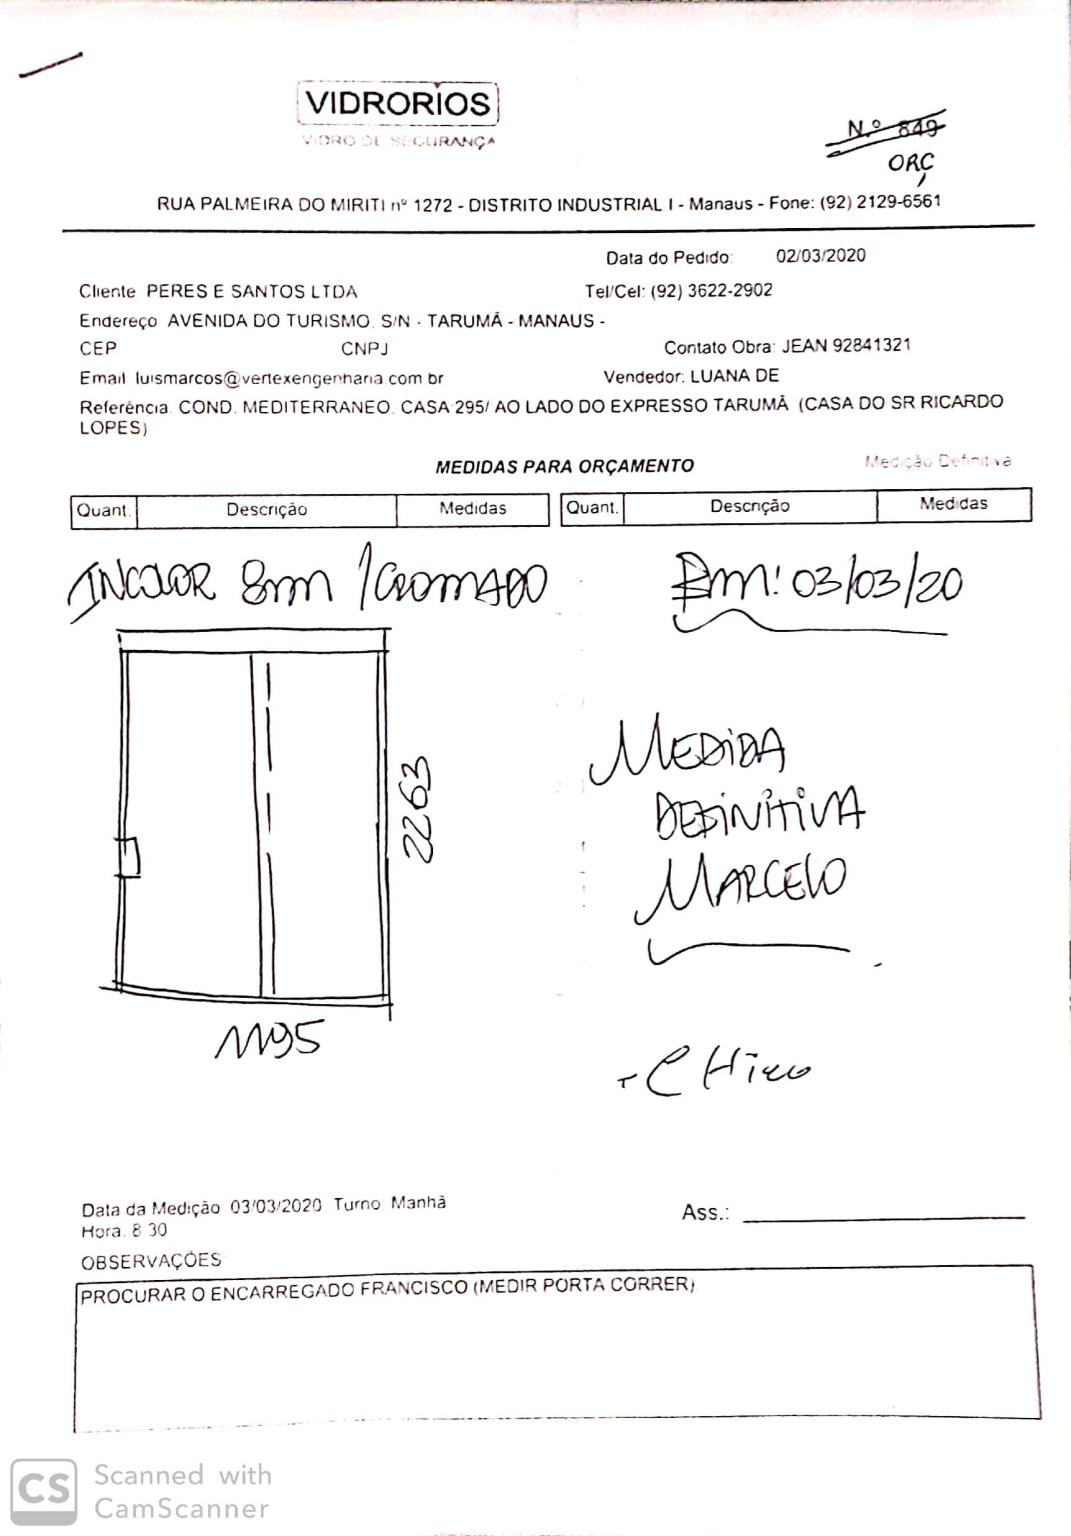 VIDRORIOS
VIDRO DE SEGURANÇA
N.º 849
ORÇ
RUA PALMEIRA DO MIRITI nº 1272 - DISTRITO INDUSTRIAL I - Manaus - Fone: (92) 2129-6561
Data do Pedido: 02/03/2020
Cliente PERES E SANTOS LTDA Tel/Cel: (92) 3622-2902
Endereço AVENIDA DO TURISMO, S/N - TARUMÃ - MANAUS -
CEP CNPJ Contato Obra: JEAN 92841321
Email luismarcos@vertexengenharia.com.br Vendedor: LUANA DE
Referência: COND. MEDITERRANEO, CASA 295/ AO LADO DO EXPRESSO TARUMÃ (CASA DO SR RICARDO
LOPES)
MEDIDAS PARA ORÇAMENTO Medição Definitiva
Quant. Descrição Medidas Quant. Descrição Medidas
INCOLOR 8mm / CROMADO
Em: 03/03/20
2263
MEDIDA
DEFINITIVA
MARCELO
1195
- CHico
Data da Medição 03/03/2020 Turno Manhã
Hora: 8:30
Ass.:
OBSERVAÇÕES
PROCURAR O ENCARREGADO FRANCISCO (MEDIR PORTA CORRER)
CS Scanned with
CamScanner